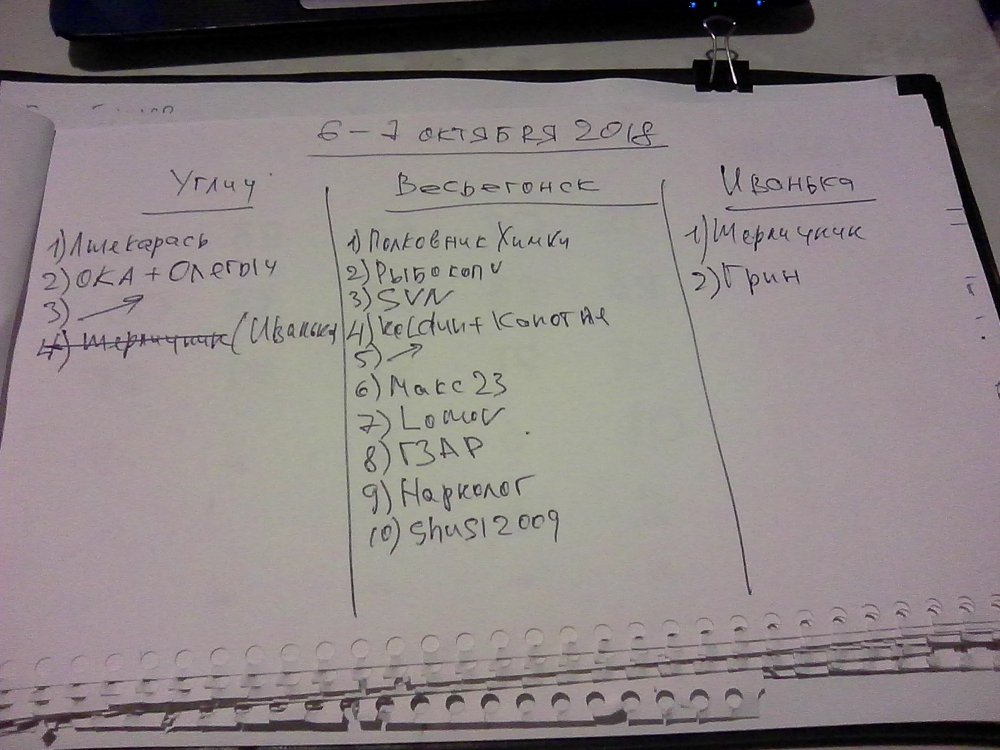 6-7 ОКТЯБРЯ 2018
Углич
1) Лшекарась
2) ОКА + Олегыч
3) →
4) Шерличник (Иванька
Весьегонск
1) Полковник Химки
2) РЫБОКОП
3) SVN
4) + Копотня
5) →
6) Макс 23
7) Lomov
8) ГЗАР
9) Нарколог
10) Shus12009
Иванька
1) Шерличник
2) Грин